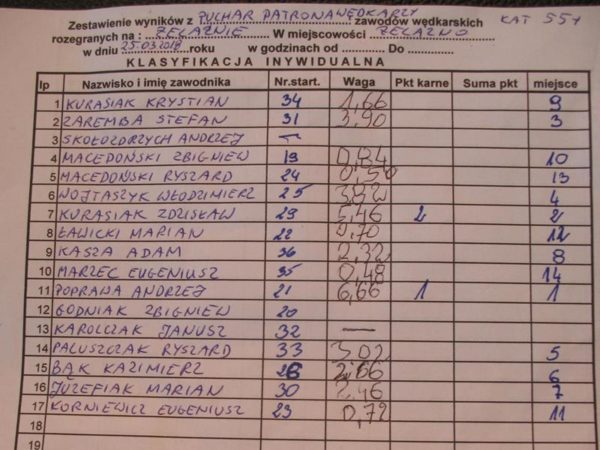 Zestawienie wyników z PUCHAR PATRONA WĘDKARZY zawodów wędkarskich KAT 55+
rozegranych na : ŻELAŹNIE W miejscowości ŻELAZNO
w dniu 25.03.2018 roku w godzinach od ............ Do ............
KLASYFIKACJA INYWIDUALNA
lp Nazwisko i imię zawodnika Nr.start. Waga Pkt karne Suma pkt miejsce
1 KURASIAK KRYSTIAN 34 1,66 9
2 ZAREMBA STEFAN 31 3,90 3
3 SKOŁOZDRZYCH ANDRZEJ —
4 MACEDOŃSKI ZBIGNIEW 19 0,84 10
5 MACEDOŃSKI RYSZARD 24 0,50 13
6 WOJTASZYK WŁODZIMIERZ 25 3,82 4
7 KURASIAK ZDZISŁAW 29 5,46 2 2
8 ŁAWICKI MARIAN 22 0,70 12
9 KASZA ADAM 36 2,32 8
10 MARZEC EUGENIUSZ 35 0,48 14
11 POPRAWA ANDRZEJ 21 6,66 1 1
12 GODNIAK ZBIGNIEW 20
13 KAROLCZAK JANUSZ 32 —
14 PALUSZCZAK RYSZARD 33 3,02 5
15 BĄK KAZIMIERZ 26 2,66 6
16 JUZEFIAK MARIAN 30 2,46 7
17 KORNIEWICZ EUGENIUSZ 23 0,72 11
18
19